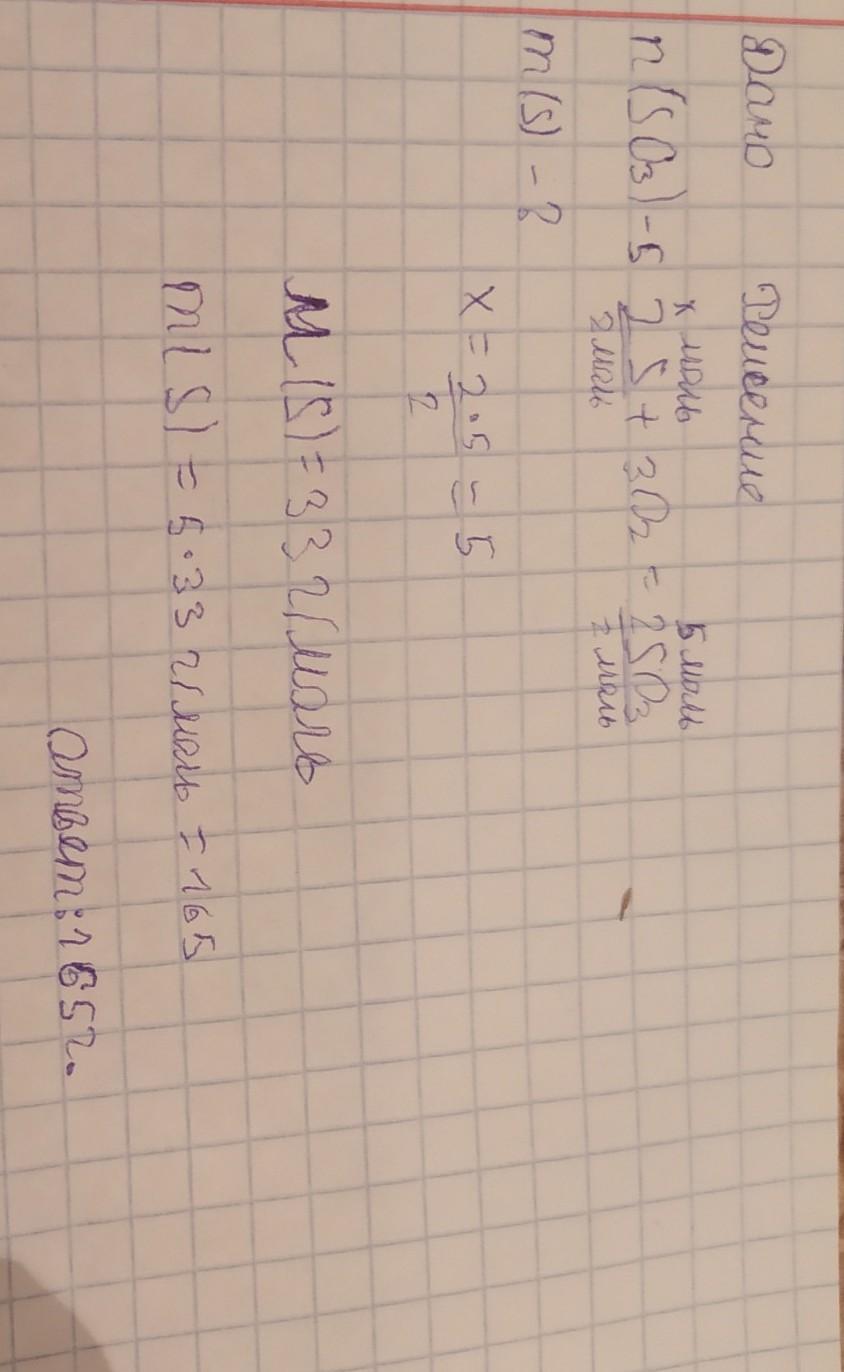 Дано Решение
x моль 5 моль
n(SO3) - 5 2S + 3O2 = 2SO3
2 моль 2 моль
m(S) - ?
x = 2·5/2 = 5
M(S) = 33 г/моль
m(S) = 5·33 г/моль = 165
Ответ: 165г.